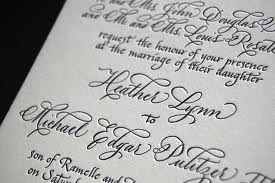 and Mrs. John Douglas
and Mr. and Mrs. Louis Rosale
request the honour of your presence
at the marriage of their daughter
Heather Lynn
to
Michael Edgar Pulitzer
son of Ramelle and
on Satur